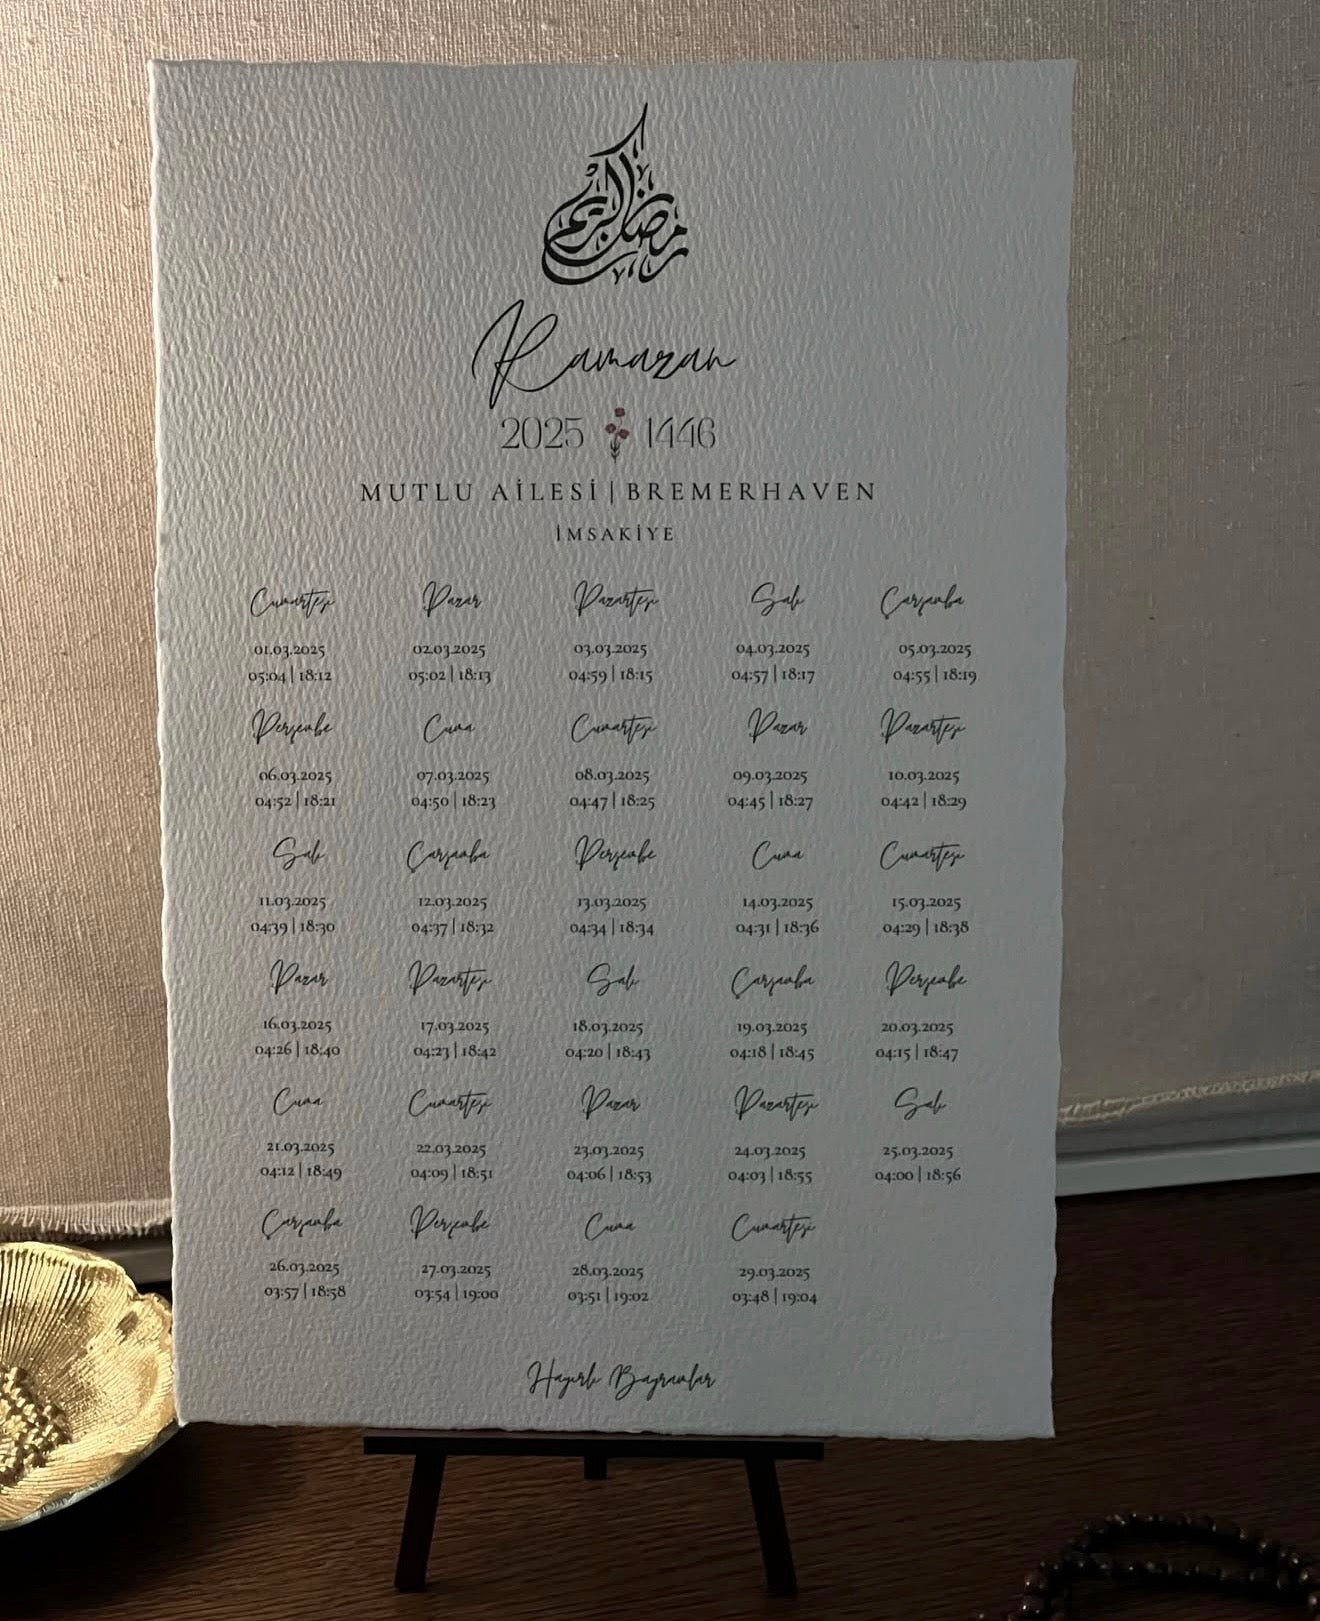 رمضان كريم
Ramazan
2025 1446
MUTLU AİLESİ | BREMERHAVEN
İMSAKİYE
Cumartesi Pazar Pazartesi Salı Çarşamba
01.03.2025 02.03.2025 03.03.2025 04.03.2025 05.03.2025
05:04 | 18:12 05:02 | 18:13 04:59 | 18:15 04:57 | 18:17 04:55 | 18:19
Perşembe Cuma Cumartesi Pazar Pazartesi
06.03.2025 07.03.2025 08.03.2025 09.03.2025 10.03.2025
04:52 | 18:21 04:50 | 18:23 04:47 | 18:25 04:45 | 18:27 04:42 | 18:29
Salı Çarşamba Perşembe Cuma Cumartesi
11.03.2025 12.03.2025 13.03.2025 14.03.2025 15.03.2025
04:39 | 18:30 04:37 | 18:32 04:34 | 18:34 04:31 | 18:36 04:29 | 18:38
Pazar Pazartesi Salı Çarşamba Perşembe
16.03.2025 17.03.2025 18.03.2025 19.03.2025 20.03.2025
04:26 | 18:40 04:23 | 18:42 04:20 | 18:43 04:18 | 18:45 04:15 | 18:47
Cuma Cumartesi Pazar Pazartesi Salı
21.03.2025 22.03.2025 23.03.2025 24.03.2025 25.03.2025
04:12 | 18:49 04:09 | 18:51 04:06 | 18:53 04:03 | 18:55 04:00 | 18:56
Çarşamba Perşembe Cuma Cumartesi
26.03.2025 27.03.2025 28.03.2025 29.03.2025
03:57 | 18:58 03:54 | 19:00 03:51 | 19:02 03:48 | 19:04
Hayırlı Bayramlar